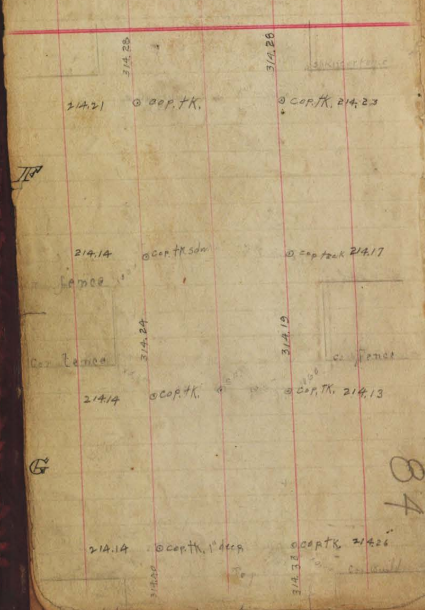 314.28 314.28
214.21 cop. tk. cop. tk. 214.23
F
214.14 cop tk sdw cop tack 214.17
fence
314.24 314.19
Cor fence Cor fence
214.14 cop. tk. cop. tk. 214.13
G
84
214.14 cop. tk. 1" deep cop tk. 214.26
314.20 314.32
Cor build